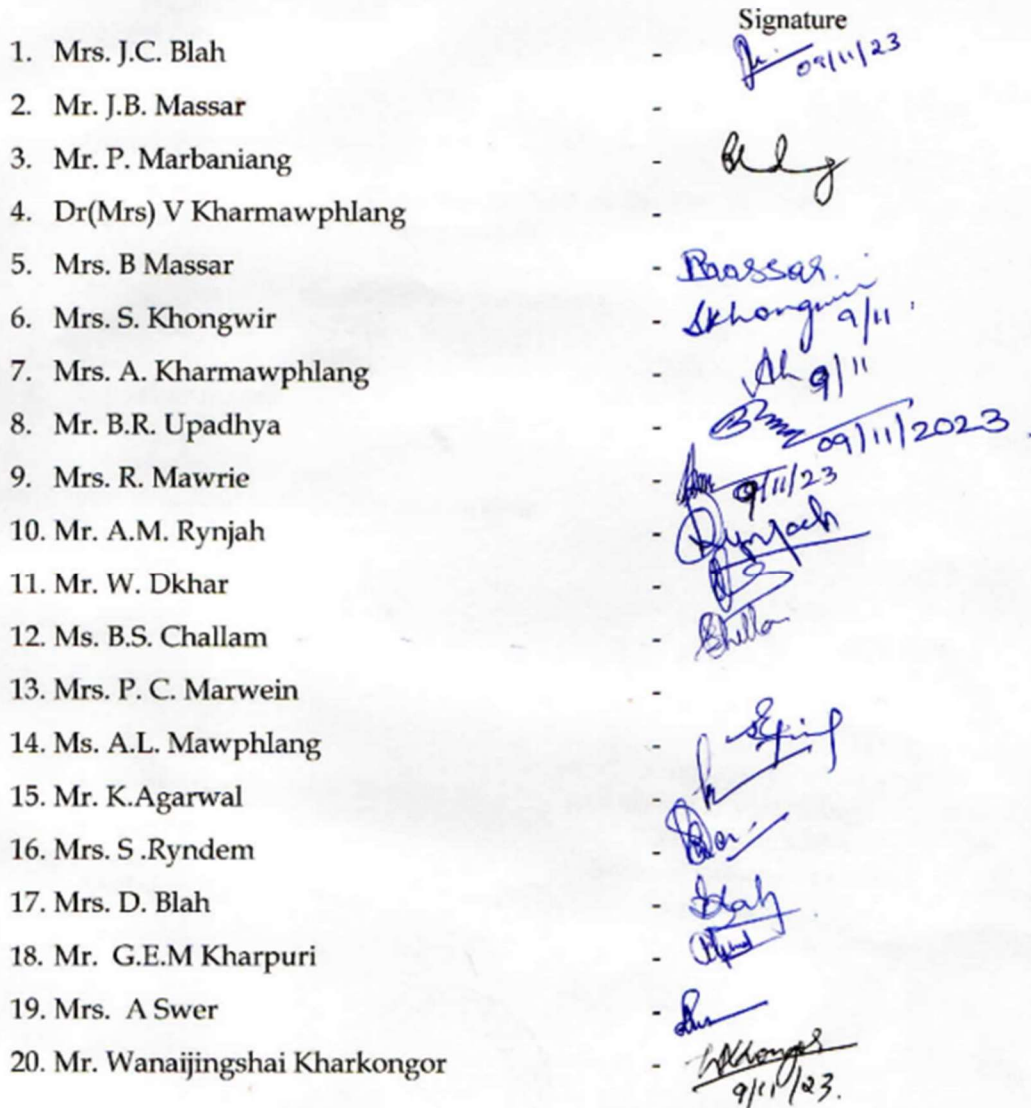 Signature
1. Mrs. J.C. Blah - 09/11/23
2. Mr. J.B. Massar -
3. Mr. P. Marbaniang -
4. Dr(Mrs) V Kharmawphlang -
5. Mrs. B Massar - Bmassar.
6. Mrs. S. Khongwir - SKhongwir 9/11
7. Mrs. A. Kharmawphlang - 9/11
8. Mr. B.R. Upadhya - 09/11/2023
9. Mrs. R. Mawrie - 9/11/23
10. Mr. A.M. Rynjah - Rynjah
11. Mr. W. Dkhar -
12. Ms. B.S. Challam -
13. Mrs. P. C. Marwein -
14. Ms. A.L. Mawphlang -
15. Mr. K.Agarwal -
16. Mrs. S .Ryndem -
17. Mrs. D. Blah - Blah
18. Mr. G.E.M Kharpuri -
19. Mrs. A Swer -
20. Mr. Wanaijingshai Kharkongor -
9/11/23.